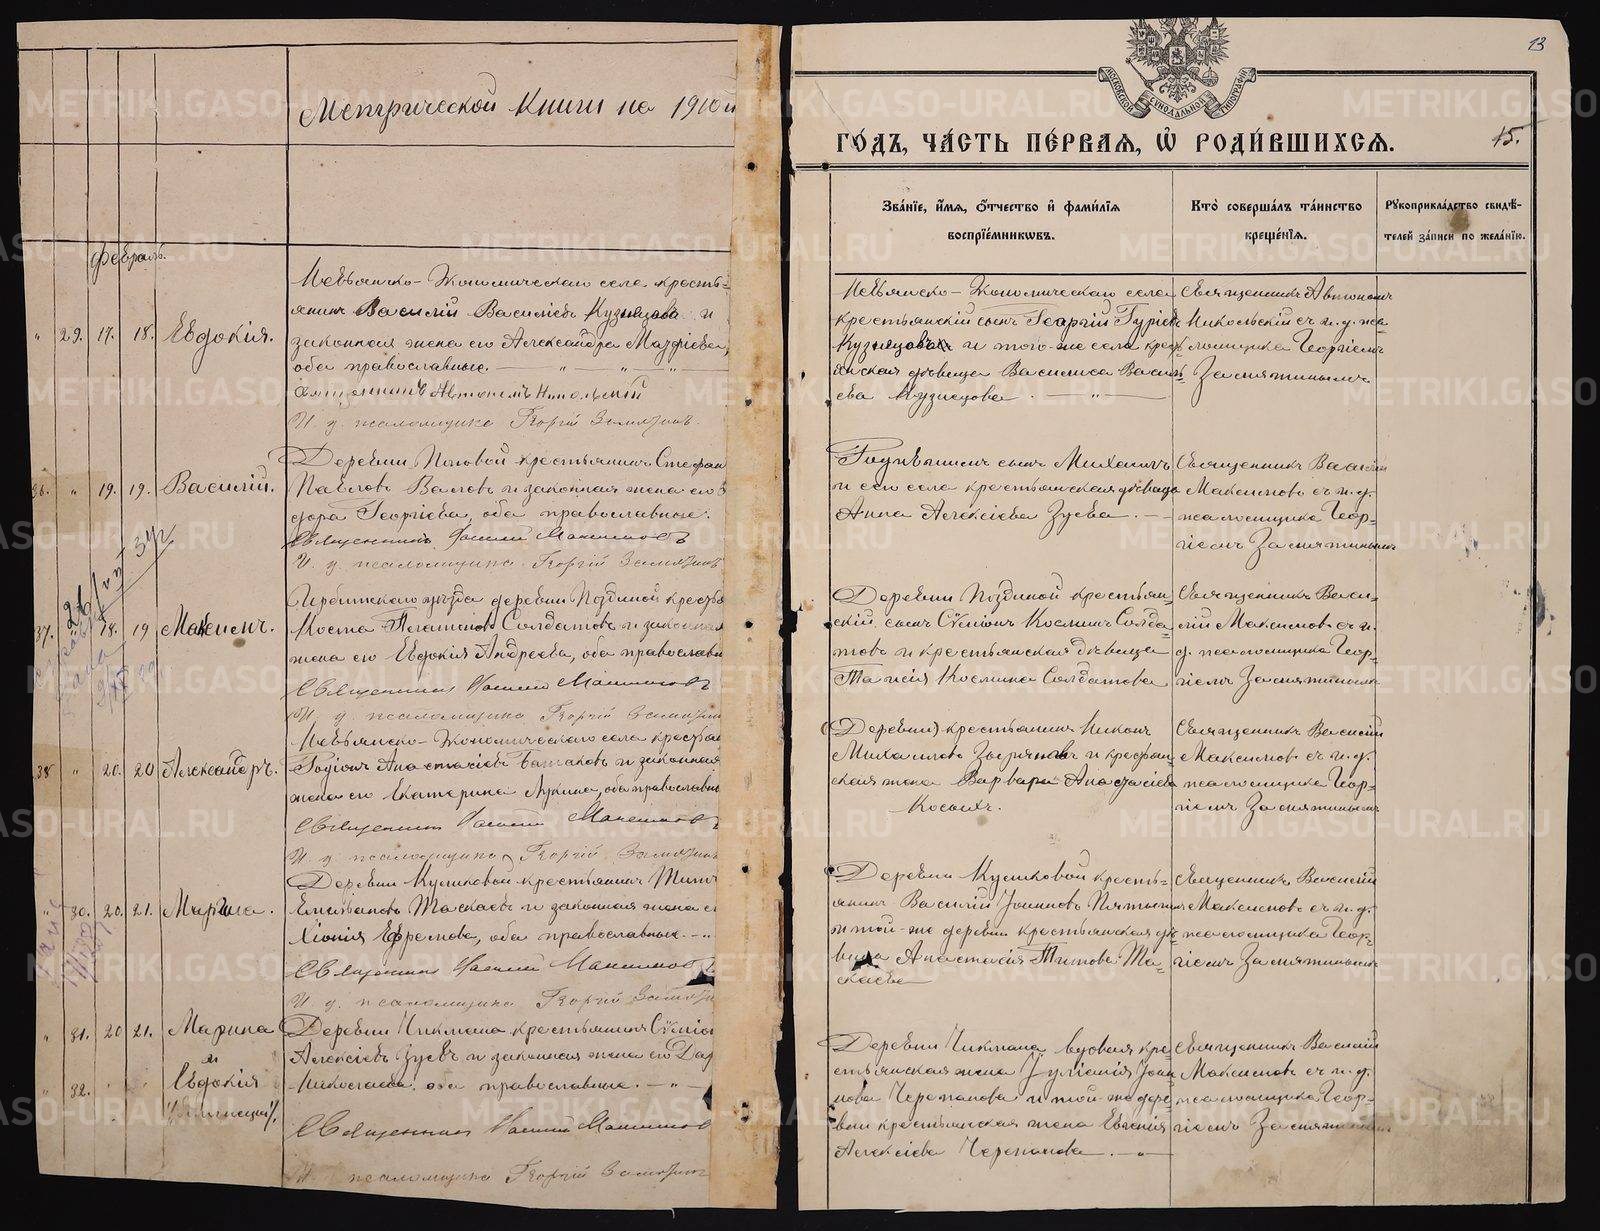 Метрической Книги на 1910й
13
МОСКОВСКОЙ СѴНОДАЛЬНОЙ ТИПОГРАФІИ
ГОДЪ, ЧАСТЬ ПЕРВАѦ, Ѡ РОДИВШИХСѦ.
15.
Званіе, имѧ, отчество и фамиліѧ
воспріемникѡвъ.
Кто совершалъ таинство
крещеніѧ.
Рꙋкоприкладство свидѣ-
телей записи по желанію.
Февраль.
" 29. 17. 18. Евдокія.
Невьянско-Экономическаго села кресть=
янинъ Василій Василіевъ Кузнецовъ и
законная жена его Александра
оба православные. — " — " — " —
Священникъ Автономъ Никольскій
И. д. псаломщика Георгій Замятинъ.
Невьянско-Экономическаго села
крестьянскій сынъ Георгій Гуріевъ
Кузнецовъ и того-же села крес
янская дѣвица Василиса Васил
ева Кузнецова. — " —
Священникъ Автономъ
Никольскій съ и. д. пса
ломщика Георгіемъ
Замятинымъ
36. " 19. 19. Василій.
Деревни Поповой крестьянинъ Стефан
Павловъ и законная жена его
дора Георгіева, оба православные.
Священникъ Василій Максимовъ
И. д. псаломщика Георгій Замятинъ
сынъ Михаилъ
и сего села крестьянская дѣвица
Анна Алексіева Зуева. —
Священникъ Василій
Максимовъ съ и. д.
псаломщика Геор=
гіемъ Замятинымъ
37. " 18. 19 Максимъ.
Ирбитскаго уѣзда деревни крестья
Косма Платоновъ Солдатовъ и законная
жена его Евдокія Андреева, оба православн
Священникъ Василій Максимовъ
И. д. псаломщика Георгій Замятин
Деревни крестьян=
скій сынъ Сѵмеонъ Косминъ Солда=
товъ и крестьянская дѣвица
Таисія Космина Солдатова
Священникъ Васи=
лій Максимовъ съ и.
д. псаломщика Геор=
гіемъ Замятинымъ
38 " 20. 20 Александръ.
Невьянско-Экономическаго села крестьян
Анастасіевъ и законная
жена его Екатерина Лукина, оба православн
Священникъ Василій Максимовъ
И. д. псаломщика Георгій Замятинъ
крестьянинъ Никонъ
Михаиловъ и крестьян
ская жена Варвара Анастасіева
Косыхъ.
Священникъ Василій
Максимовъ съ и. д.
псаломщика Геор=
гіемъ Замятинымъ
" 30. 20. 21. Марина.
Деревни Куликовой крестьянинъ Титъ
Емельяновъ Таскаевъ и законная жена е
Хіонія Ефремова, оба православные. — "
Священникъ Василій Максимовъ
И. д. псаломщика Георгій Замятин
Деревни Куликовой кресть=
янинъ Василій Іоанновъ
и той-же деревни крестьянская дѣ
вица Анастасія Титова Та=
скаева
Священникъ Василій
Максимовъ съ и. д.
псаломщика Геор=
гіемъ Замятинымъ
" 31. 20 21. Марина
и
" 32. " " Евдокія
/близнецы/.
Деревни Чикмана крестьянинъ Сѵмеон
Алексіевъ Зуевъ и законная жена его Дар
Николаева, оба православные. — " —
Священникъ Василій Максимов
И. псаломщика Георгій Замятин
Деревни Чикмана вдовая кре
стьянская жена Іуліанія Іоан
нова Черепанова и той-же дере
вни крестьянская жена Евгенія
Алексіева Черепанова. — " —
Священникъ Василій
Максимовъ съ и. д.
псаломщика Геор=
гіемъ Замятинымъ
METRIKI.GASO-URAL.RU